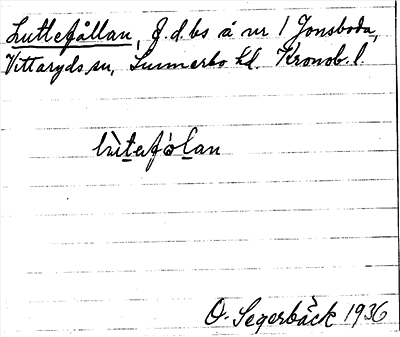 Luttefållan, f.d.bs å nr 1 Jonsboda,
Vittaryds sn, Sunnerbo hd. Kronob. l.
lùtefålan
O. Segerbäck 1936